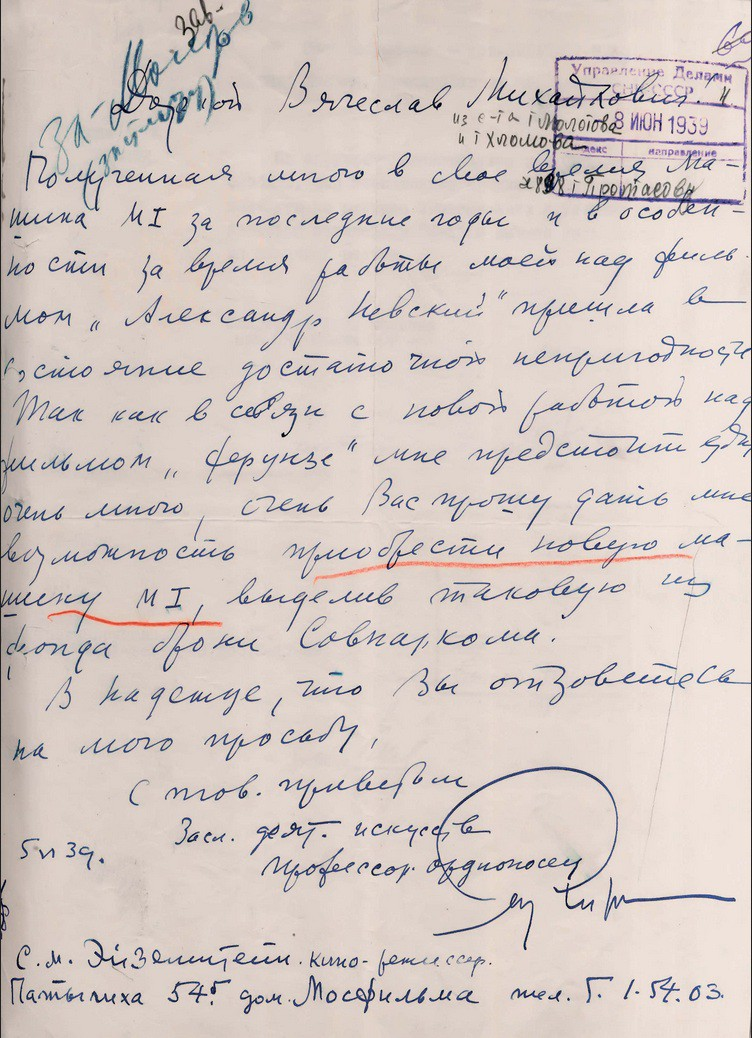 зав-
За - Молотов
Управление Делами
СНК СССР
8 ИЮН 1939
Индекс направление
Дорогой Вячеслав Михайлович!
из с-та т Молотова
и т Хломова
т Протасову
Полученная мною в свое время ма-
шина М I за последние годы и в особен-
ности за время работы моей над филь-
мом „Александр Невский" пришла в
состояние достаточной непригодности
Так как в связи с новой работой над
фильмом „Фрунзе" мне предстоит
очень много, очень Вас прошу дать мне
возможность приобрести новую ма-
шину М I, выделив таковую из
фонда брони Совнаркома.
В надежде, что Вы отзоветесь
на мою просьбу,
С тов. приветом
Засл. деят. искусств
профессор орденоносец
5 VI 39.
С. М. Эйзенштейн. кино-режиссер.
Потылиха 54б дом. Мосфильма тел. Г. 1.54.03.